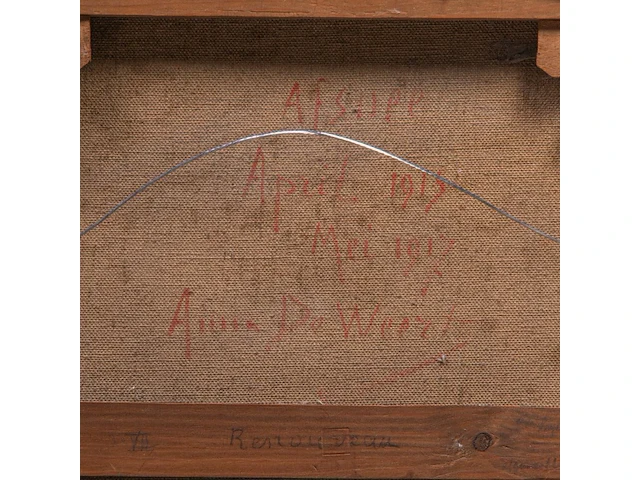 Afsnee
April. 1917
Mei 1917
Anna De Weert
VII Renouveau